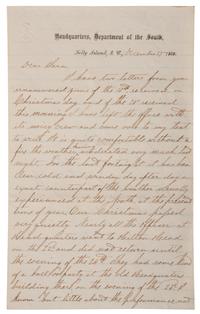 Headquarters, Department of the South,
Folly Island, S. C., December 27th 1863.
Dear Clara
I have two letters from you
unanswered, yours of the 13th received on
Christmas day, and of the 18th received
this morning. I have left the office with
its noisy crew and come over to my tent
to write. It is quite comfortable without a fire
for the weather moderated very much last
night. For the last fortnight it has been
clear cold and windy day after day an
exact counterpart of the weather usually
experienced at the North at the present
time of year. Our Christmas passed
very quietly. Nearly all the officers at
Head quarters went to Hilton Head
on the 23d and did not return until
the evening of the 26th. They had some kind
of a ball or party at the old Headquarters
building there, on the evening of the 25th. I
know but little about the performance, not